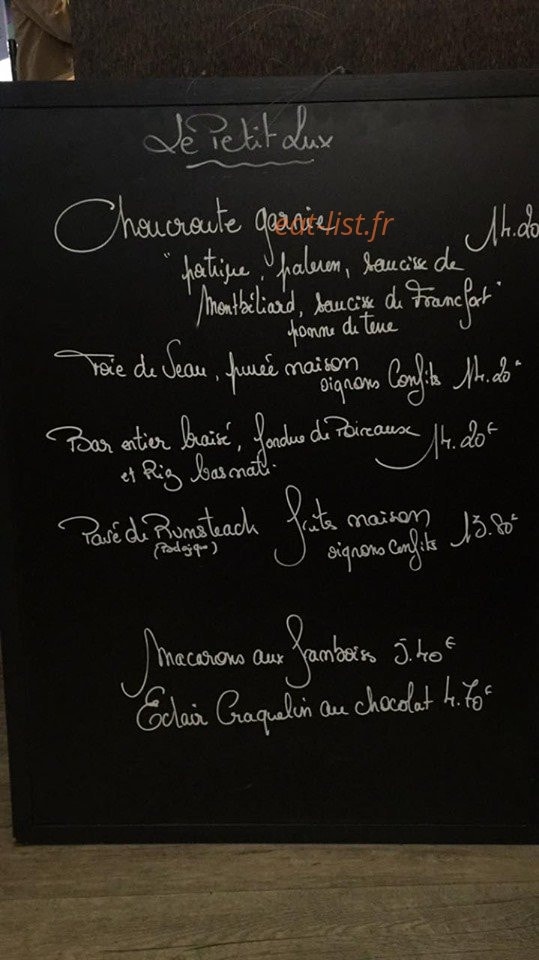 Le Petit Lux
Choucroute garnie 14.20
eat-list.fr
" poitrine, paleron, saucisse de
Montbéliard, saucisse de Francfort"
pomme de terre
Foie de Veau, purée maison
oignons Confits 14.20€
Bar entier braisé, fondue de Poireaux 14.20€
et Riz basmati.
Pavé de Rumsteack frites maison
oignons Confits 15.80€
Macarons aux framboises 5.40€
Eclair Craquelin au chocolat 4.70€